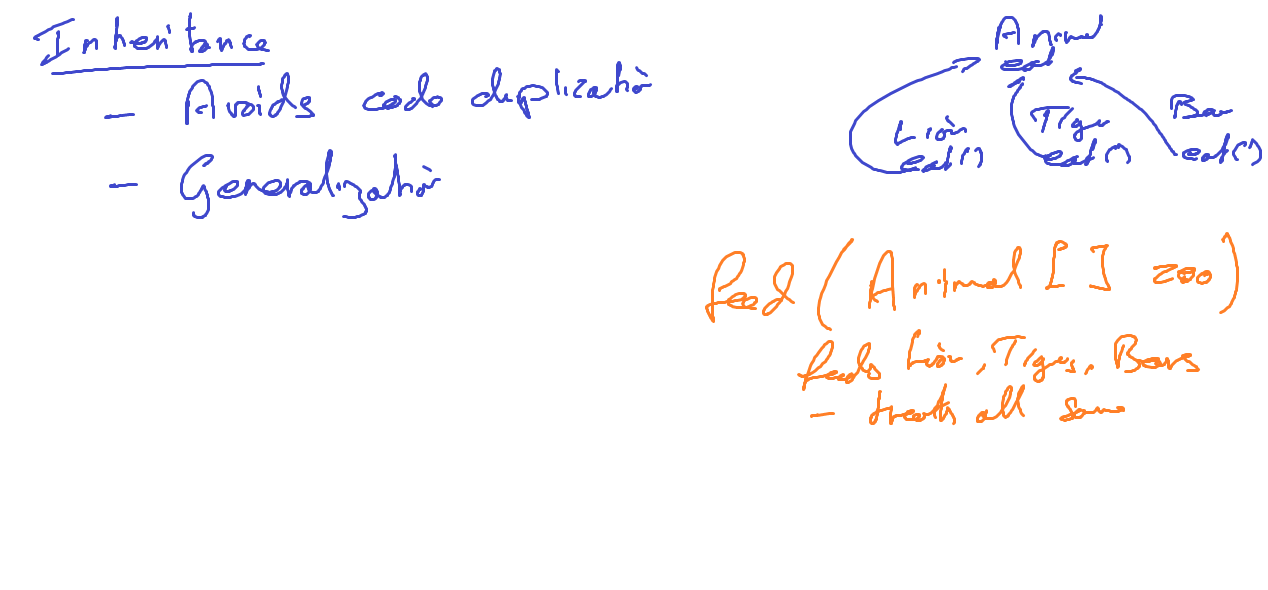 Inheritance
- Avoids code duplication
- Generalization
Animal
eat
Lion Tiger Bear
eat() eat() eat()
feed (Animal [] zoo)
feeds Lion, Tigers, Bears
- treats all same